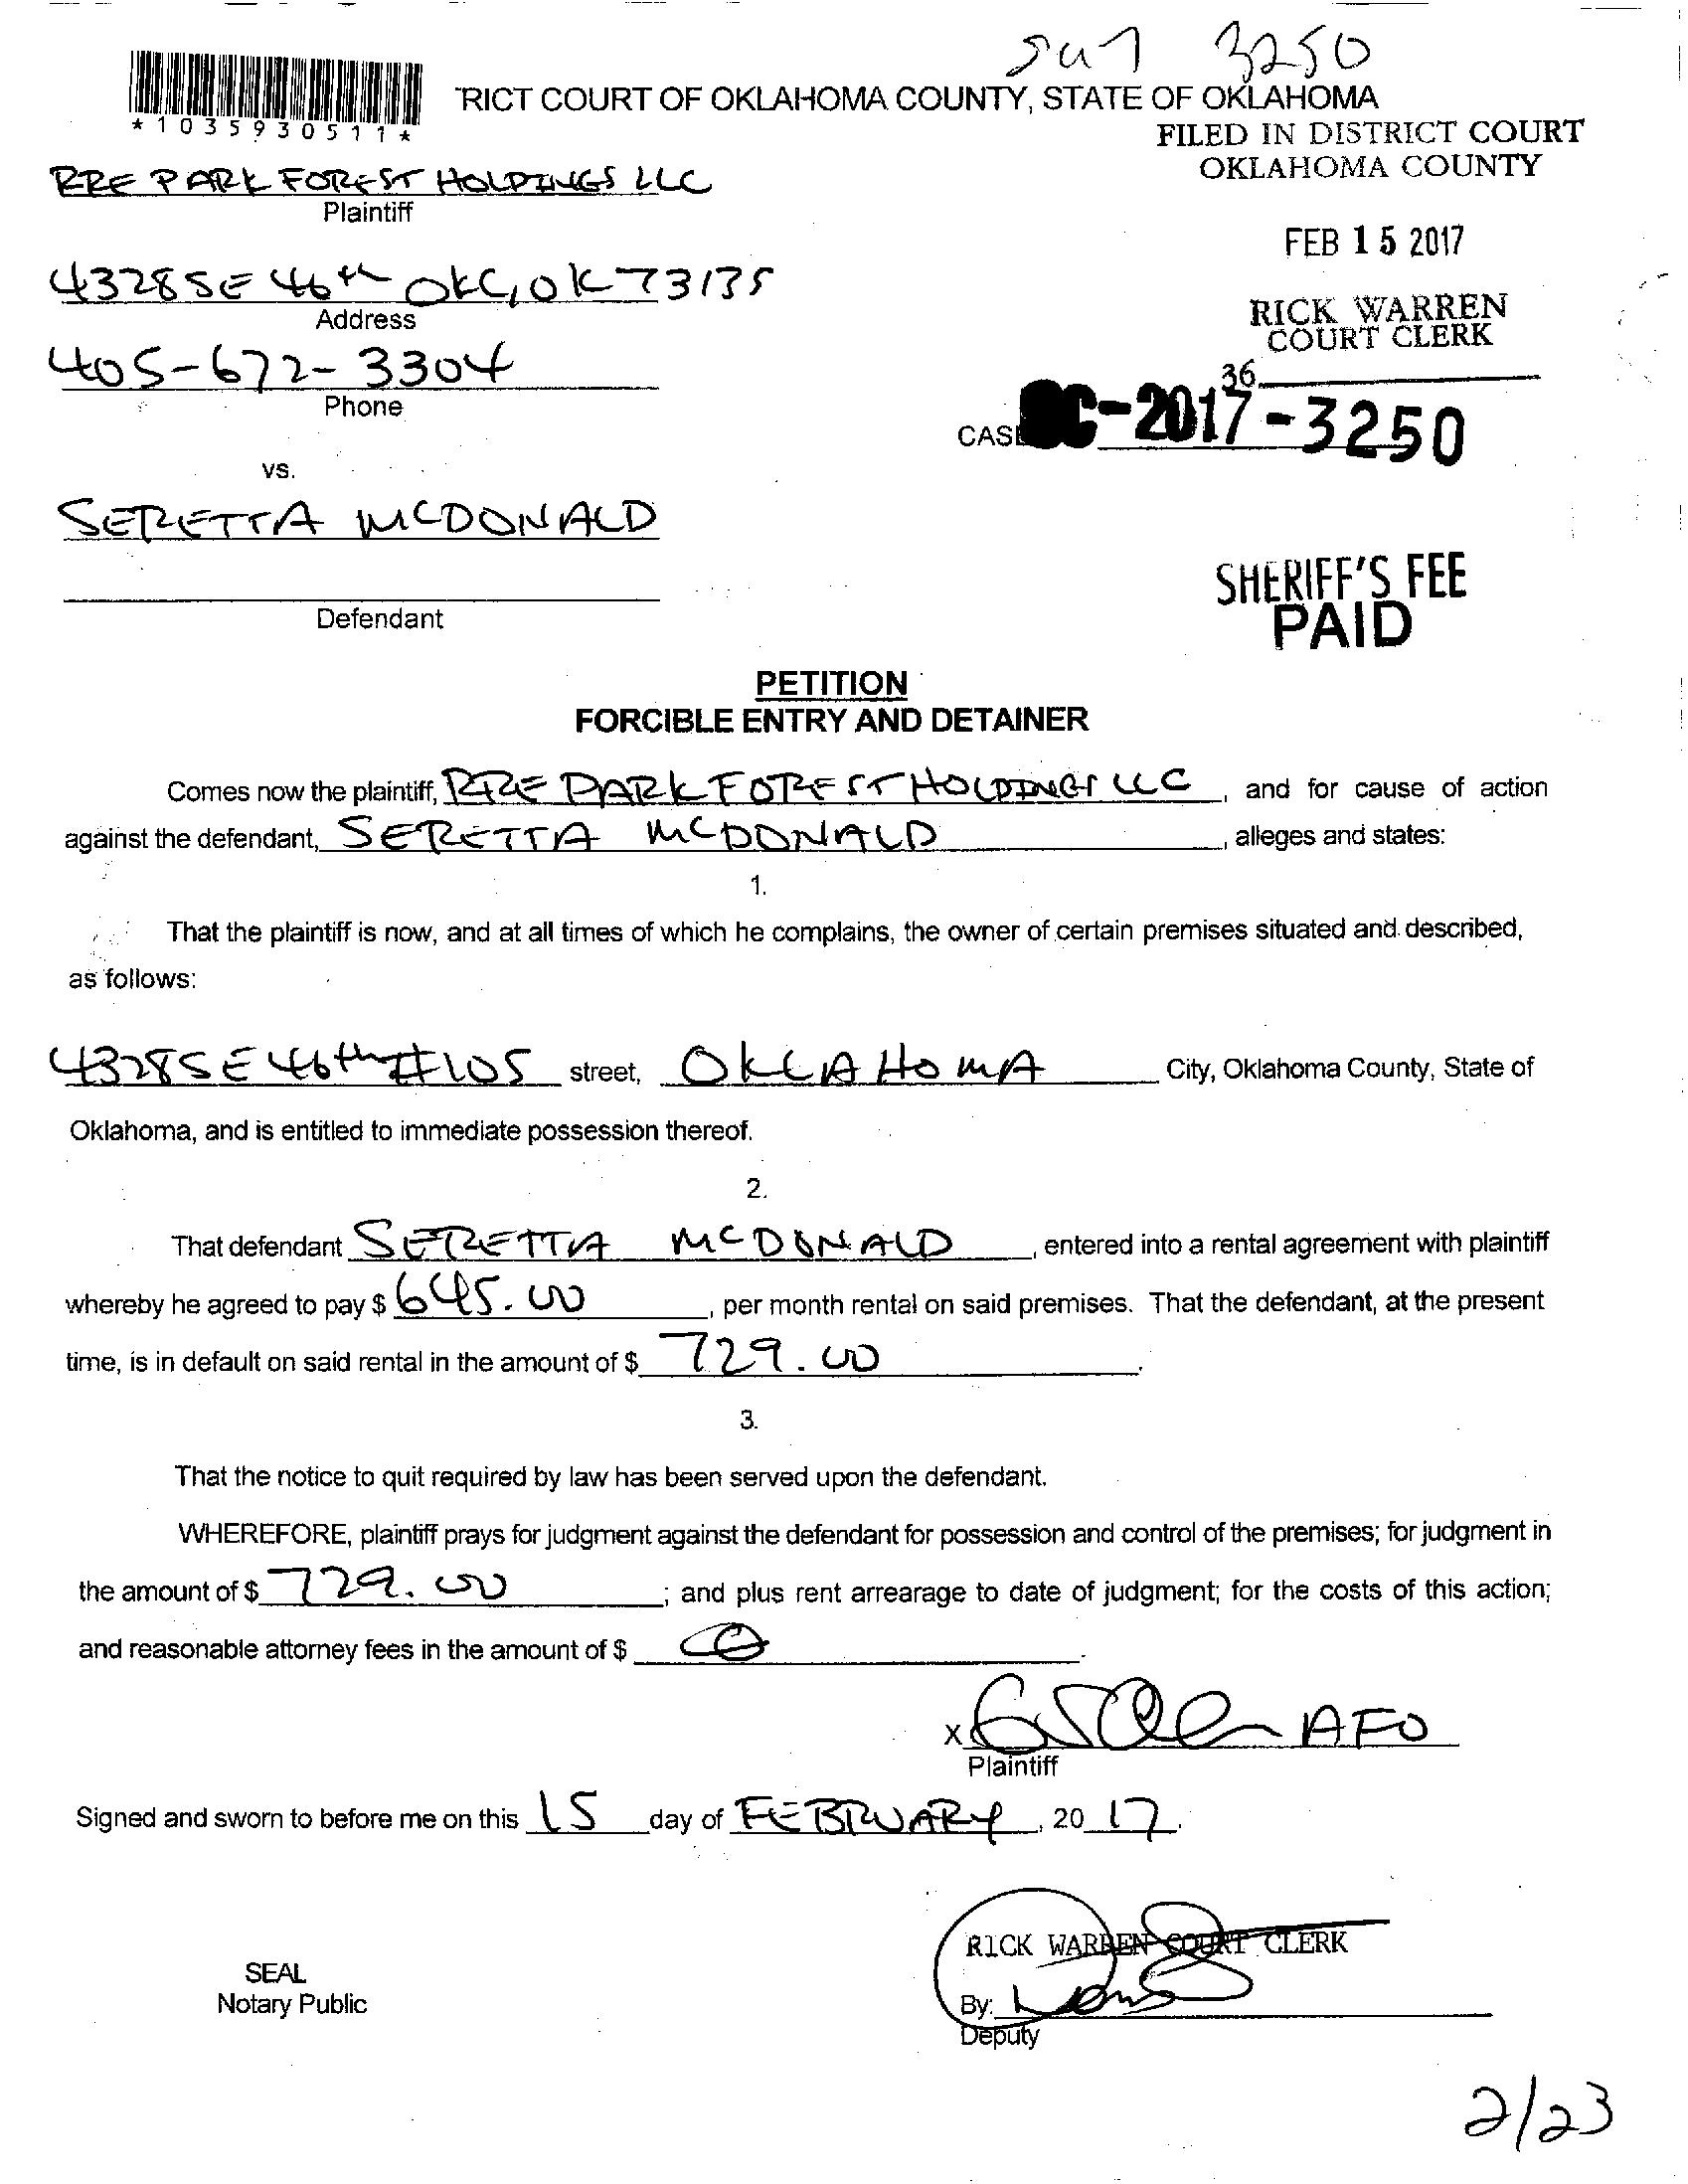 3250
*1035930511*
TRICT COURT OF OKLAHOMA COUNTY, STATE OF OKLAHOMA
FILED IN DISTRICT COURT
OKLAHOMA COUNTY
RRE PARK FOREST HOLDINGS LLC
Plaintiff
FEB 15 2017
4328 SE 46th OKC, OK 73135
Address
RICK WARREN
COURT CLERK
405-672-3304
Phone
36
CASE SC-2017-3250
vs.
SERETTA MCDONALD
Defendant
SHERIFF'S FEE
PAID
PETITION
FORCIBLE ENTRY AND DETAINER
Comes now the plaintiff, RRE PARK FOREST HOLDINGS LLC, and for cause of action
against the defendant, SERETTA MCDONALD, alleges and states:
1.
That the plaintiff is now, and at all times of which he complains, the owner of certain premises situated and described,
as follows:
4328 SE 46th #105 street, OKLAHOMA City, Oklahoma County, State of
Oklahoma, and is entitled to immediate possession thereof.
2.
That defendant SERETTA MCDONALD, entered into a rental agreement with plaintiff
whereby he agreed to pay $ 645.00, per month rental on said premises. That the defendant, at the present
time, is in default on said rental in the amount of $ 729.00.
3.
That the notice to quit required by law has been served upon the defendant.
WHEREFORE, plaintiff prays for judgment against the defendant for possession and control of the premises; for judgment in
the amount of $ 729.00; and plus rent arrearage to date of judgment; for the costs of this action;
and reasonable attorney fees in the amount of $
X AFO
Plaintiff
Signed and sworn to before me on this 15 day of FEBRUARY, 20 17.
RICK WARREN COURT CLERK
SEAL
Notary Public
By:
Deputy
2/23